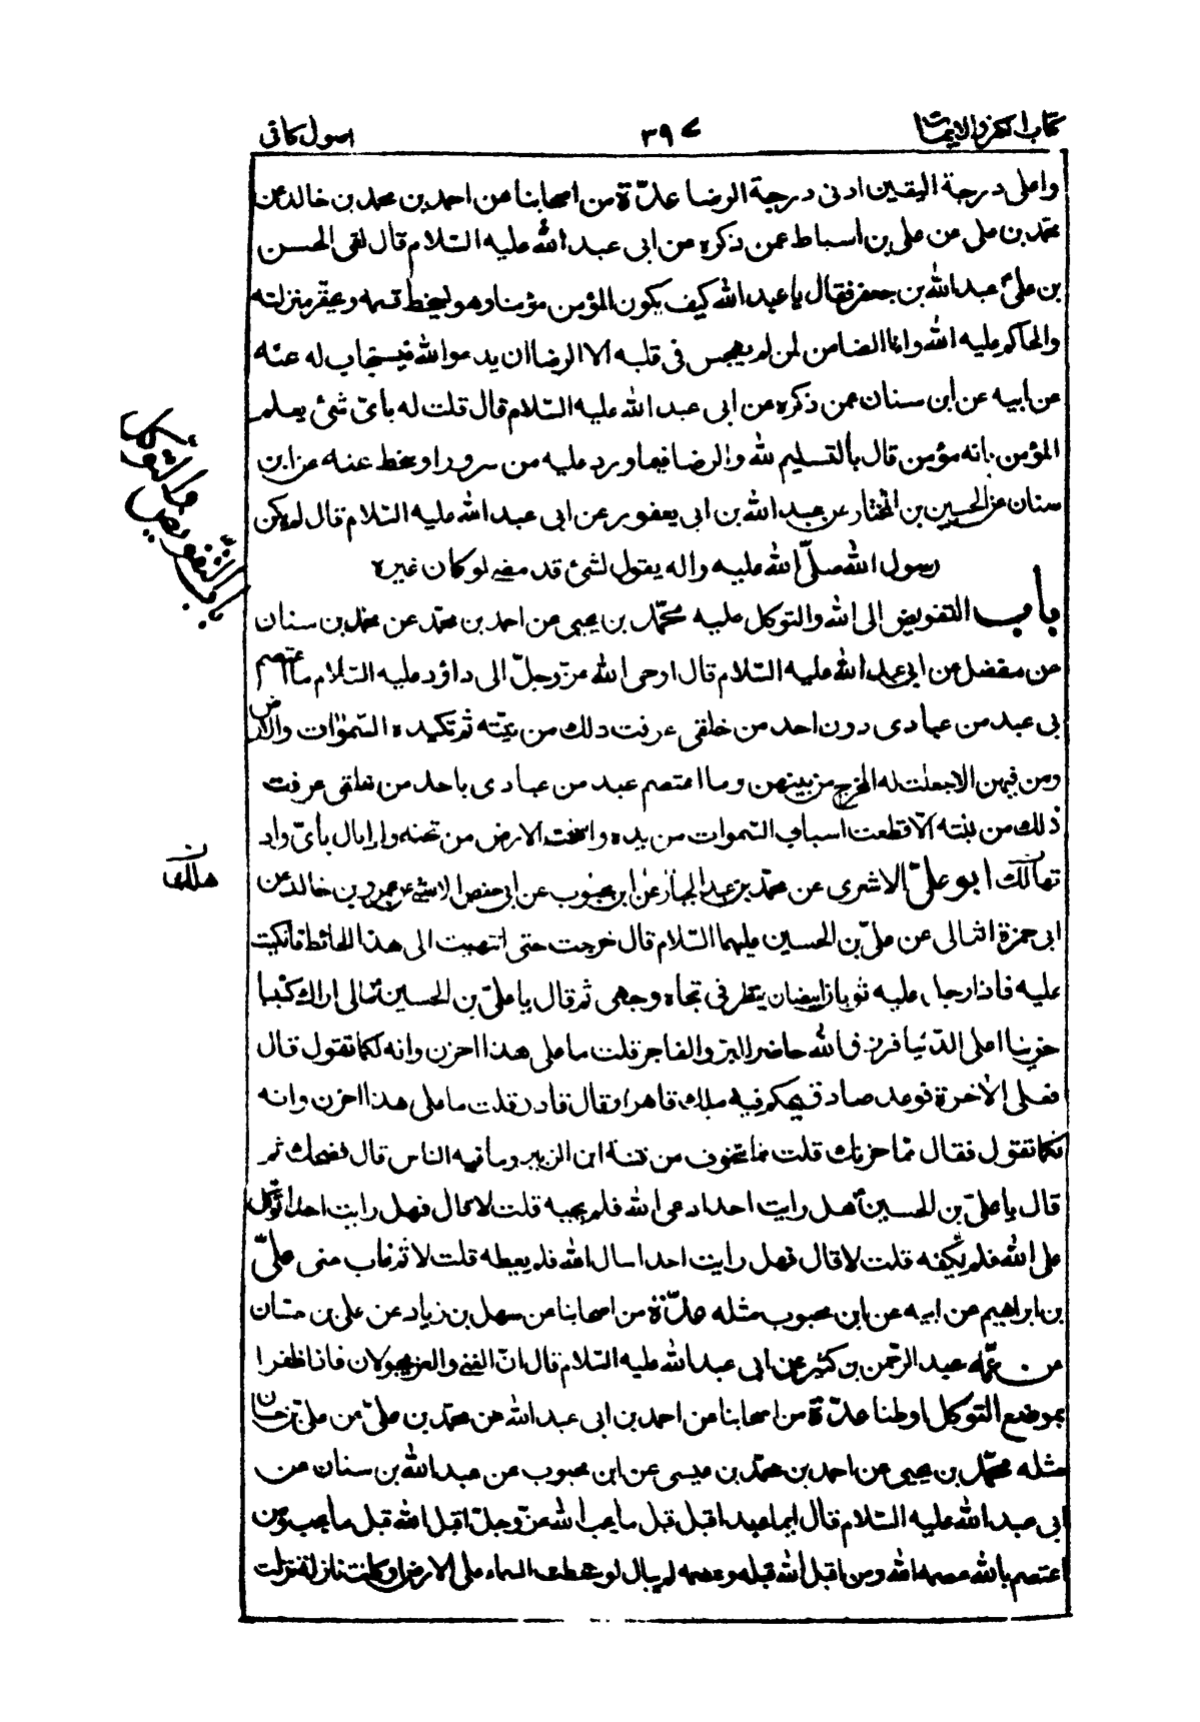 كتاب الكفر والايمان
٣٩٧
اصول كافى
واعلى درجة اليقين ادنى درجة الرضا عدّة من اصحابنا عن احمد بن محمد بن خالد عن
محمّد بن على عن على بن اسباط عمن ذكره عن ابى عبد الله عليه السّلام قال لقى الحسن
بن علىّ عبد الله بن جعفر فقال يا عبد الله كيف يكون المؤمن مؤمنا وهو يسخط قسمه ويحقّر منزلته
والحاكم عليه الله وانا الضامن لمن لم يهجس فى قلبه الا الرضا ان يدعو الله فيستجاب له عنه
عن ابيه عن ابن سنان عمن ذكره عن ابى عبد الله عليه السّلام قال قلت له باىّ شئ يعلم
المؤمن بانه مؤمن قال بالتسليم لله والرضا فيما ورد عليه من سرور او سخط عنه عن ابن
سنان عن الحسين بن المختار عن عبد الله بن ابى يعفور عن ابى عبد الله عليه السّلام قال لم يكن
رسول الله صلّى الله عليه واله يقول لشئ قد مضى لو كان غيره
باب التفويض الى الله والتوكل عليه
باب التفويض الى الله والتوكل عليه محمّد بن يحيى عن احمد بن محمّد عن محمّد بن سنان
عن مفضل عن ابى عبد الله عليه السّلام قال اوحى الله عزّ وجلّ الى داؤد عليه السّلام ما اعتصم
بى عبد من عبادى دون احد من خلقى عرفت ذلك من نيّته ثم تكيده السّموات والارض
ومن فيهن الا جعلت له المخرج من بينهن وما اعتصم عبد من عبادى باحد من خلقى عرفت
ذلك من نيته الّا قطعت اسباب السّموات من يديه واسخت الارض من تحته ولم ابال باىّ واد
تهالك ابو علىّ الاشعرى عن محمّد بن عبد الجبار عن ابن محبوب عن ابى حفص الاعشى عن عمرو بن خالد عن
هلكن
ابى حمزة الثمالى عن علىّ بن الحسين عليهما السّلام قال خرجت حتى انتهيت الى هذا الحائط فاتكيت
عليه فاذا رجل عليه ثوبان ابيضان ينظر فى تجاه وجهى ثم قال يا علىّ بن الحسين مالى اراك كئيبا
حزينا اعلى الدّنيا فرزق الله حاضر للبرّ والفاجر قلت ما على هذا احزن وانه لكما تقول قال
فعلى الاخرة فوعد صادق يحكم فيه ملك قاهر او قال قادر قلت ما على هذا احزن وانه
لكما تقول فقال ممّا حزنك قلت مما نتخوف من فتنة ابن الزبير وما فيه الناس قال فضحك ثم
قال يا علىّ بن الحسين هل رايت احدا دعى الله فلم يجبه قلت لا قال فهل رايت احدا توكل
على الله فلم يكفه قلت لا قال فهل رايت احدا سال الله فلم يعطه قلت لا ثم غاب عنى علىّ
بن ابراهيم عن ابيه عن ابن محبوب مثله عدّة من اصحابنا عن سهل بن زياد عن على بن حسّان
عن عمّه عبد الرّحمن بن كثير عن ابى عبد الله عليه السّلام قال انّ الغنى والعز يجولان فاذا ظفرا
بموضع التوكل اوطنا عدّة من اصحابنا عن احمد بن ابى عبد الله عن محمّد بن علىّ عن علىّ بن حسان
مثله محمّد بن يحيى عن احمد بن محمّد بن عيسى عن ابن محبوب عن عبد الله بن سنان عن
ابى عبد الله عليه السّلام قال ايما عبد اقبل قبل ما يحب الله عزّ وجلّ اقبل الله قبل ما يحب ومن
اعتصم بالله عصمه الله ومن اقبل الله قبله وعصمه لم يبال لو سقطت السماء على الارض او كانت نازلة نزلت